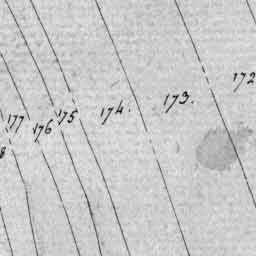 177
176
175
174.
173.
172
8